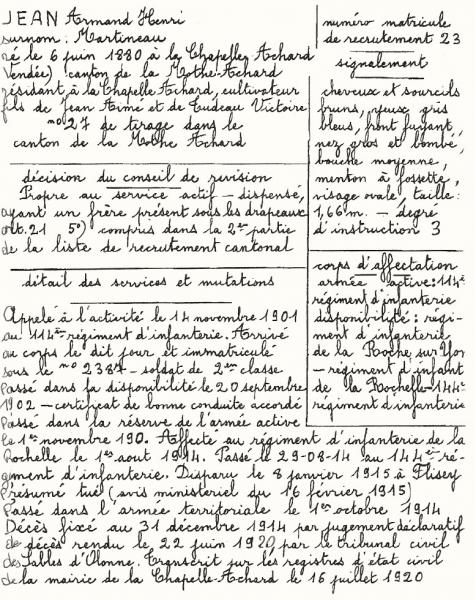 JEAN Armand Henri
surnom : Martineau
né le 6 juin 1880 à la Chapelle Achard
Vendée) canton de la Mothe-Achard
résidant à la Chapelle Achard, cultivateur
fils de Jean Aimé et de Tudeau Victoire
n° 27 de tirage dans le
canton de la Mothe Achard
numéro matricule
de recrutement 23
signalement
cheveux et sourcils
bruns, yeux gris
bleus, front fuyant,
nez gros et bombé,
bouche moyenne,
menton à fossette,
visage ovale, taille :
1,66 m. - degré
d'instruction 3
décision du conseil de revision
Propre au service actif - dispensé,
ayant un frère présent sous les drapeaux
art. 21 5°) compris dans la 2me partie
de la liste de recrutement cantonal
corps d'affectation
armée active : 114e
régiment d'infanterie
disponibilité : régi-
ment d'infanterie
de la Roche sur Yon
- régiment d'infant
de la Rochelle - 144e
régiment d'infanterie
détail des services et mutations
Appelé à l'activité le 14 novembre 1901
au 114e régiment d'infanterie. Arrivé
au corps le dit jour et immatriculé
sous le n° 2387 - soldat de 2me classe
Passé dans la disponibilité le 20 septembre
1902 - certificat de bonne conduite accordé
Passé dans la réserve de l'armée active
le 1er novembre 190. Affecté au régiment d'infanterie de la
Rochelle le 1er aout 1914. Passé le 29-08-14 au 144e ré-
giment d'infanterie. Disparu le 8 janvier 1915 à Flisey
Présumé tué (avis ministeriel du 16 février 1915)
Passé dans l'armée territoriale le 1er octobre 1914
Décès fixé au 31 décembre 1914 par jugement déclaratif
de décès rendu le 22 juin 1920 par le tribunal civil
des Sables d'Olonne. Transcrit sur les registres d'état civil
de la mairie de la Chapelle-Achard le 16 juillet 1920